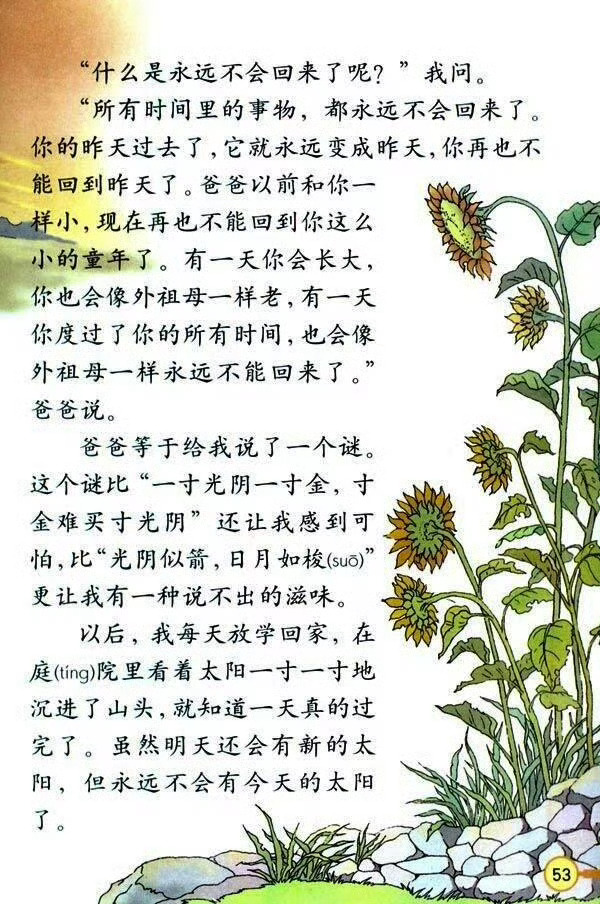 “什么是永远不会回来了呢？”我问。
“所有时间里的事物，都永远不会回来了。
你的昨天过去了，它就永远变成昨天，你再也不
能回到昨天了。爸爸以前和你一
样小，现在再也不能回到你这么
小的童年了。有一天你会长大，
你也会像外祖母一样老，有一天
你度过了你的所有时间，也会像
外祖母一样永远不能回来了。”
爸爸说。
爸爸等于给我说了一个谜。
这个谜比“一寸光阴一寸金，寸
金难买寸光阴”还让我感到可
怕，比“光阴似箭，日月如梭(suō)”
更让我有一种说不出的滋味。
以后，我每天放学回家，在
庭(tíng)院里看着太阳一寸一寸地
沉进了山头，就知道一天真的过
完了。虽然明天还会有新的太
阳，但永远不会有今天的太阳
了。
53